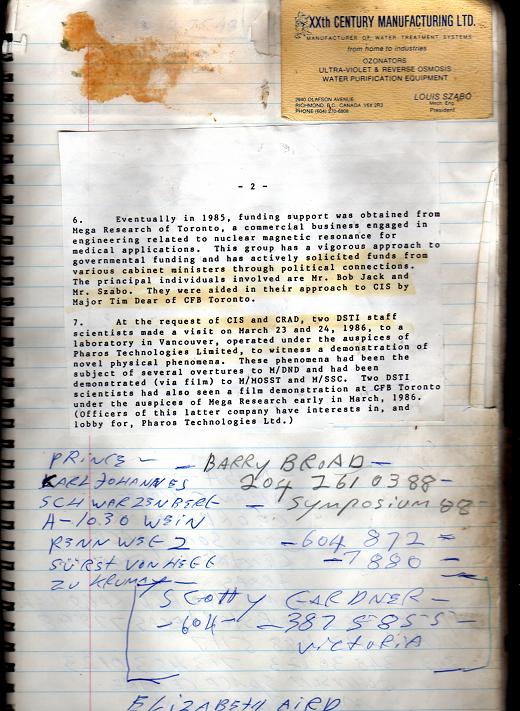 XXth CENTURY MANUFACTURING LTD.
MANUFACTURER OF WATER TREATMENT SYSTEMS
from home to industries
OZONATORS
ULTRA-VIOLET & REVERSE OSMOSIS
WATER PURIFICATION EQUIPMENT
2640 OLAFSON AVENUE
RICHMOND, B.C. CANADA V6X 2R3
PHONE (604) 270-6808
LOUIS SZABO
Mech. Eng.
President
- 2 -
6. Eventually in 1985, funding support was obtained from
Mega Research of Toronto, a commercial business engaged in
engineering related to nuclear magnetic resonance for
medical applications. This group has a vigorous approach to
governmental funding and has actively solicited funds from
various cabinet ministers through political connections.
The principal individuals involved are Mr. Bob Jack and
Mr. Szabo. They were aided in their approach to CIS by
Major Tim Dear of CFB Toronto.
7. At the request of CIS and CRAD, two DSTI staff
scientists made a visit on March 23 and 24, 1986, to a
laboratory in Vancouver, operated under the auspices of
Pharos Technologies Limited, to witness a demonstration of
novel physical phenomena. These phenomena had been the
subject of several overtures to M/DND and had been
demonstrated (via film) to M/MOSST and M/SSC. Two DSTI
scientists had also seen a film demonstration at CFB Toronto
under the auspices of Mega Research early in March, 1986.
(Officers of this latter company have interests in, and
lobby for, Pharos Technologies Ltd.)
PRINCE —
KARL JOHANNES
SCHWARZENBERG
A-1030 WEIN
RENN WEG 2
SÜRST VON HEGG
ZU KRUMAY —
— BARRY BROAD —
204 261 0388 —
— Symposium 88 —
— 604 872 —
— 7880 —
SCOTTY GARDNER —
— 604 — — 387 5855 —
VICTORIA
ELIZABETH AIRD